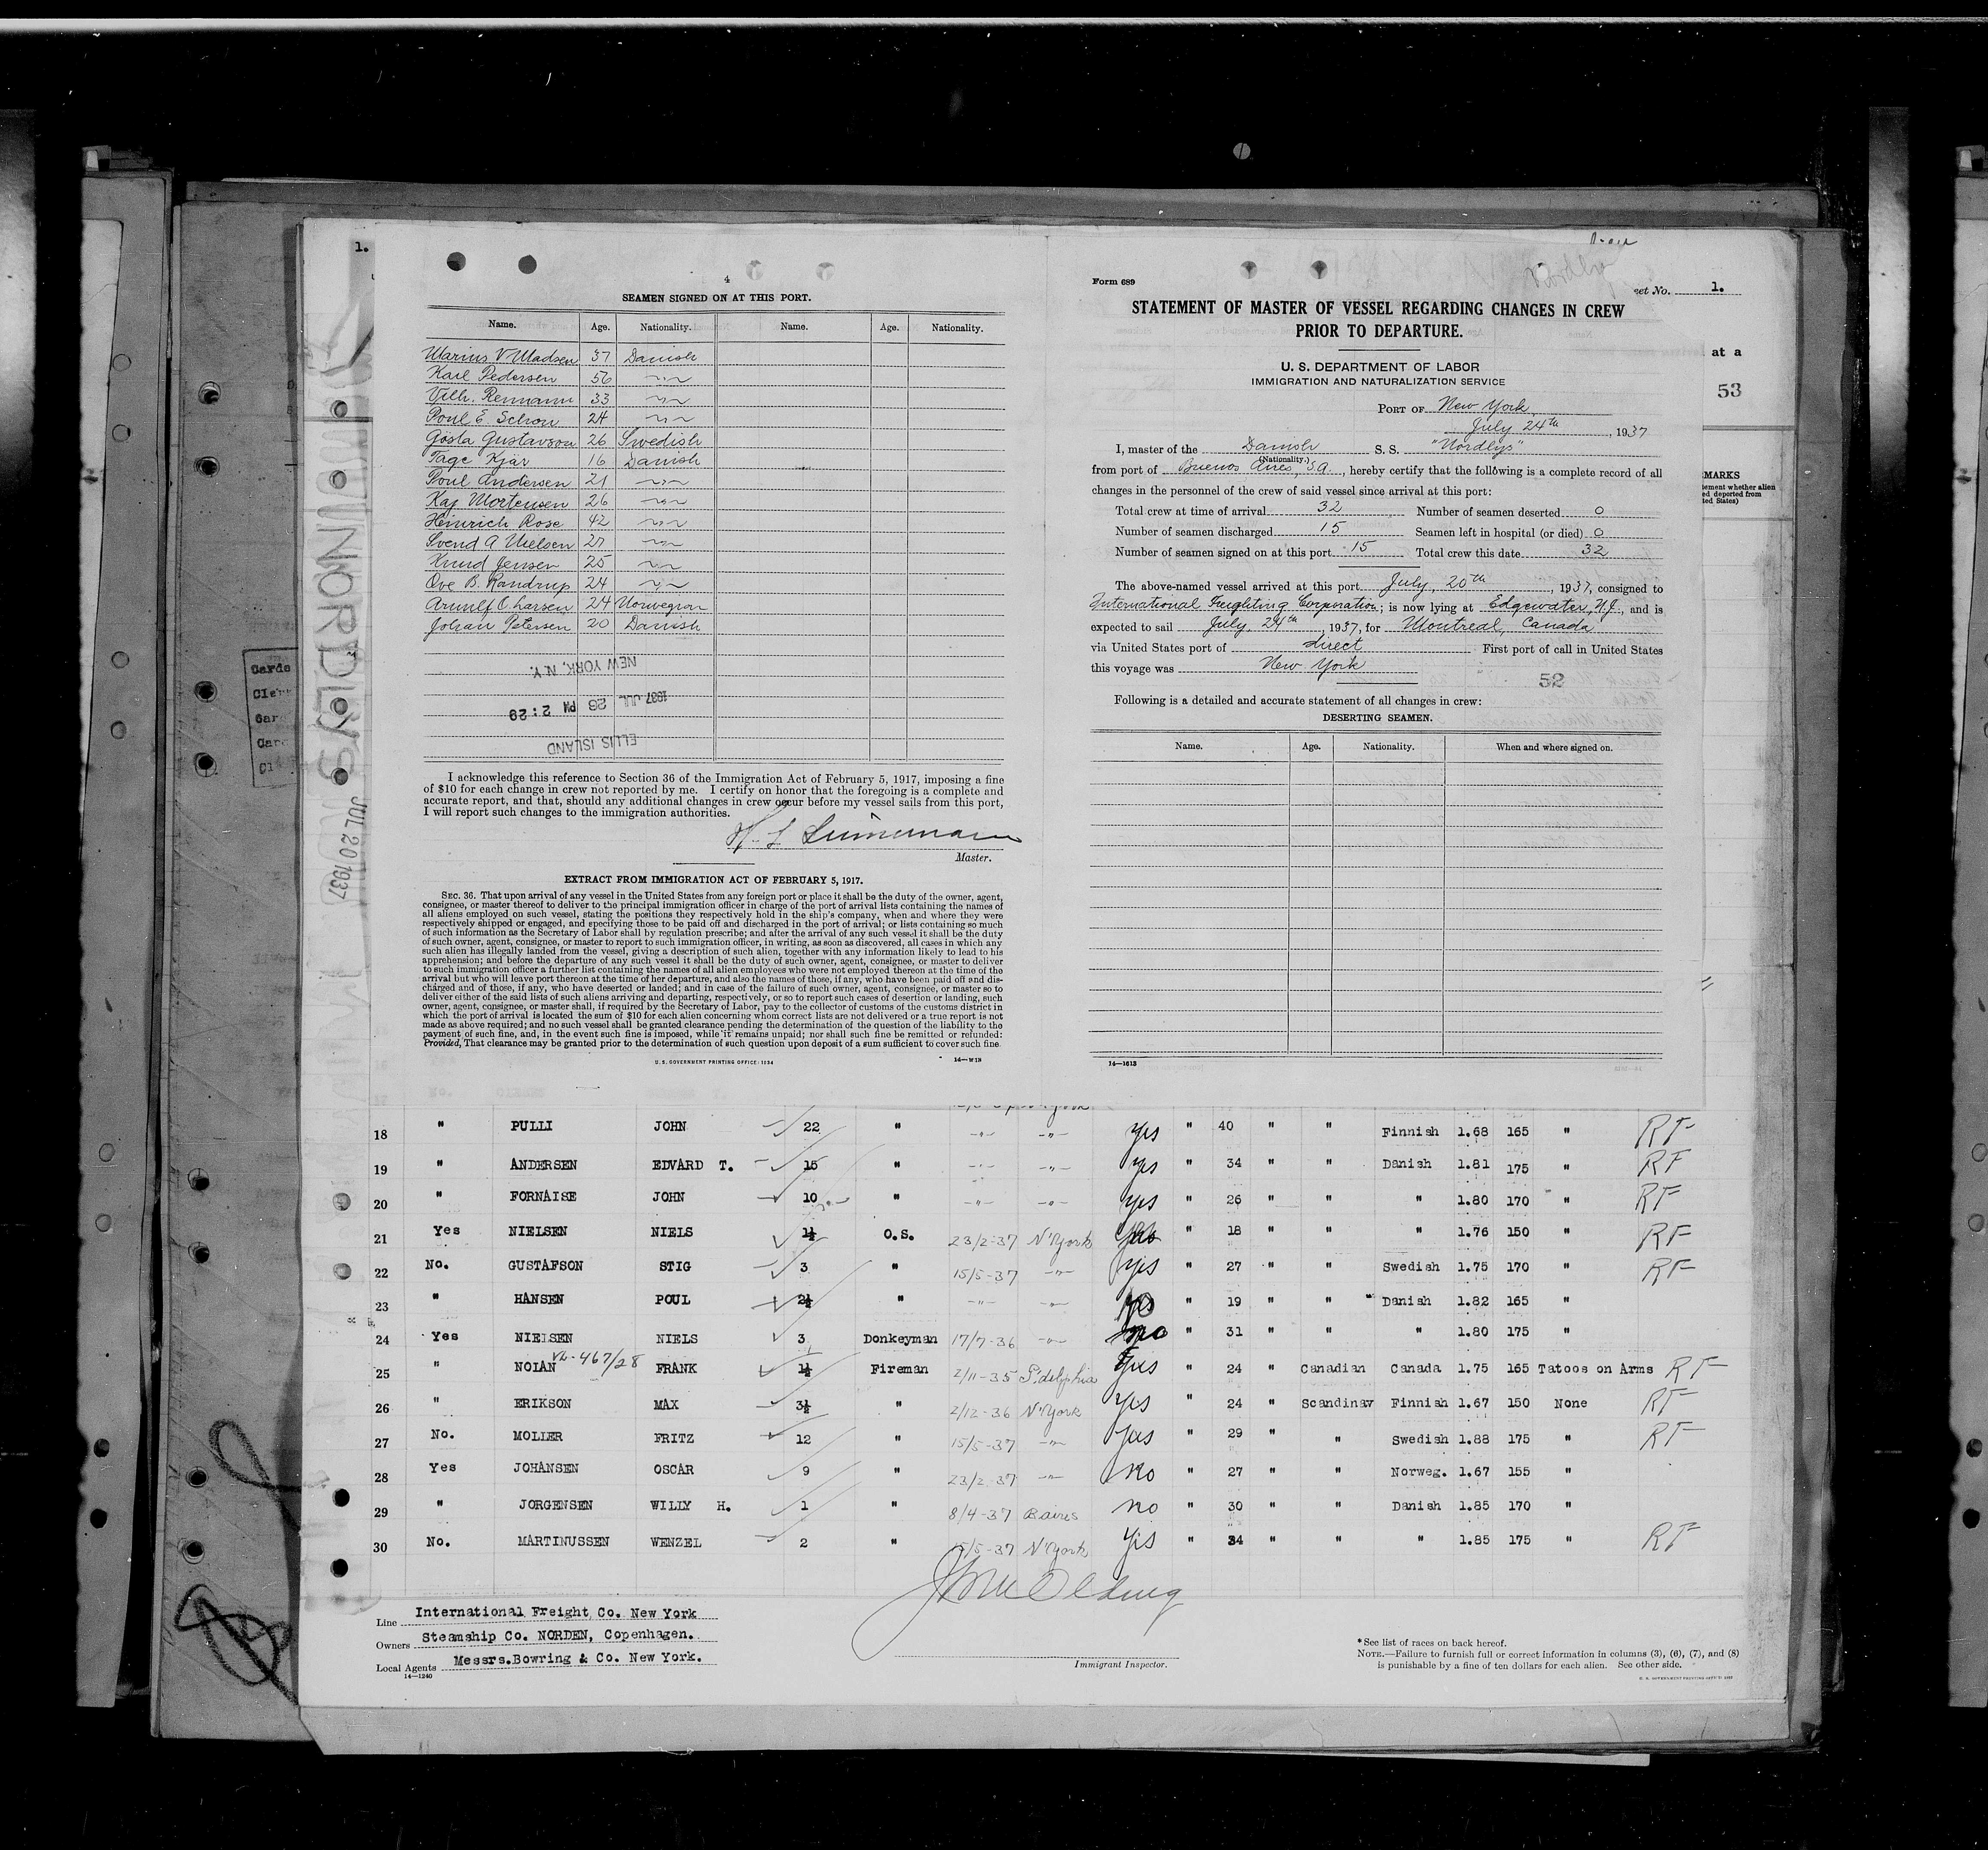 1.
4
SEAMEN SIGNED ON AT THIS PORT.
Name. Age. Nationality. Name. Age. Nationality.
Marius V Madsen 37 Danish
Karl Pedersen 56 -"-
Vilh. Remann 33 -"-
Poul E Schou 24 -"-
Gösta Gustavson 26 Swedish
Tage Kjär 16 Danish
Poul Andersen 21 -"-
Kaj Mortensen 26 -"-
Heinrich Rose 42 -"-
Svend A Nielsen 27 -"-
Knud Jensen 25 -"-
Ove B. Randrup 24 -"-
Arnulf O. Larsen 24 Norwegian
Johan Petersen 20 Danish
NEW YORK, N.Y.
1937 JUL 26 PM 2:29
ELLIS ISLAND
I acknowledge this reference to Section 36 of the Immigration Act of February 5, 1917, imposing a fine
of $10 for each change in crew not reported by me. I certify on honor that the foregoing is a complete and
accurate report, and that, should any additional changes in crew occur before my vessel sails from this port,
I will report such changes to the immigration authorities.
Master.
EXTRACT FROM IMMIGRATION ACT OF FEBRUARY 5, 1917.
SEC. 36. That upon arrival of any vessel in the United States from any foreign port or place it shall be the duty of the owner, agent,
consignee, or master thereof to deliver to the principal immigration officer in charge of the port of arrival lists containing the names of
all aliens employed on such vessel, stating the positions they respectively hold in the ship's company, when and where they were
respectively shipped or engaged, and specifying those to be paid off and discharged in the port of arrival; or lists containing so much
of such information as the Secretary of Labor shall by regulation prescribe; and after the arrival of any such vessel it shall be the duty
of such owner, agent, consignee, or master to report to such immigration officer, in writing, as soon as discovered, all cases in which any
such alien has illegally landed from the vessel, giving a description of such alien, together with any information likely to lead to his
apprehension; and before the departure of any such vessel it shall be the duty of such owner, agent, consignee, or master to deliver
to such immigration officer a further list containing the names of all alien employees who were not employed thereon at the time of the
arrival but who will leave port thereon at the time of her departure, and also the names of those, if any, who have been paid off and dis-
charged and of those, if any, who have deserted or landed; and in case of the failure of such owner, agent, consignee, or master so to
deliver either of the said lists of such aliens arriving and departing, respectively, or so to report such cases of desertion or landing, such
owner, agent, consignee, or master shall, if required by the Secretary of Labor, pay to the collector of customs of the customs district in
which the port of arrival is located the sum of $10 for each alien concerning whom correct lists are not delivered or a true report is not
made as above required; and no such vessel shall be granted clearance pending the determination of the question of the liability to the
payment of such fine, and, in the event such fine is imposed, while it remains unpaid; nor shall such fine be remitted or refunded:
Provided, That clearance may be granted prior to the determination of such question upon deposit of a sum sufficient to cover such fine
U. S. GOVERNMENT PRINTING OFFICE: 1934
NORDLYS
JUL 20 1937
Form 689
eet No. 1.
STATEMENT OF MASTER OF VESSEL REGARDING CHANGES IN CREW
PRIOR TO DEPARTURE.
U. S. DEPARTMENT OF LABOR
IMMIGRATION AND NATURALIZATION SERVICE
PORT OF New York
July 24th, 1937
I, master of the Danish S. S. "Nordlys"
(Nationality.)
from port of Buenos Aires, S.A., hereby certify that the following is a complete record of all
changes in the personnel of the crew of said vessel since arrival at this port:
Total crew at time of arrival 32 Number of seamen deserted 0
Number of seamen discharged 15 Seamen left in hospital (or died) 0
Number of seamen signed on at this port 15 Total crew this date 32
The above-named vessel arrived at this port July, 20th, 1937, consigned to
International Freighting Corporation; is now lying at Edgewater, N.J., and is
expected to sail July, 24th, 1937, for Montreal, Canada
via United States port of direct First port of call in United States
this voyage was New York
52
Following is a detailed and accurate statement of all changes in crew:
DESERTING SEAMEN.
Name. Age. Nationality. When and where signed on.
14—1613
at a
53
MARKS
18 " PULLI JOHN 22 " -"- -"- Yes " 40 " " Finnish 1.68 165 " RF
19 " ANDERSEN EDVARD T. 15 " -"- -"- Yes " 34 " " Danish 1.81 175 " RF
20 " FORNAISE JOHN 10 " -"- -"- Yes " 26 " " " 1.80 170 " RF
21 Yes NIELSEN NIELS 1½ O.S. 23/2-37 N'York " 18 " " " 1.76 150 " RF
22 No. GUSTAFSON STIG 3 " 15/5-37 -"- Yes " 27 " " Swedish 1.75 170 " RF
23 " HANSEN POUL 2½ " -"- -"- " 19 " " Danish 1.82 165 "
24 Yes NIELSEN NIELS 3 Donkeyman 17/7-36 -"- no " 31 " " " 1.80 175 "
25 " NOLAN FRANK 1½ Fireman 2/11-35 P.delphia Yes " 24 " Canadian Canada 1.75 165 Tatoos on Arms RF
26 " ERIKSON MAX 3½ " 2/12-36 N'York Yes " 24 " Scandinav Finnish 1.67 150 None RF
27 No. MOLLER FRITZ 12 " 15/5-37 -"- Yes " 29 " " Swedish 1.88 175 " RF
28 Yes JOHANSEN OSCAR 9 " 23/2-37 -"- No " 27 " " Norweg. 1.67 155 "
29 " JORGENSEN WILLY H. 1 " 8/4-37 Baires no " 30 " " Danish 1.85 170 "
30 No. MARTINUSSEN WENZEL 2 " 15/5-37 N'York Yes " 34 " " " 1.85 175 " RF
Line International Freight Co. New York
Owners Steamship Co. NORDEN, Copenhagen.
Local Agents Messrs.Bowring & Co. New York.
14—1240
Immigrant Inspector.
*See list of races on back hereof.
NOTE.—Failure to furnish full or correct information in columns (3), (6), (7), and (8)
is punishable by a fine of ten dollars for each alien. See other side.